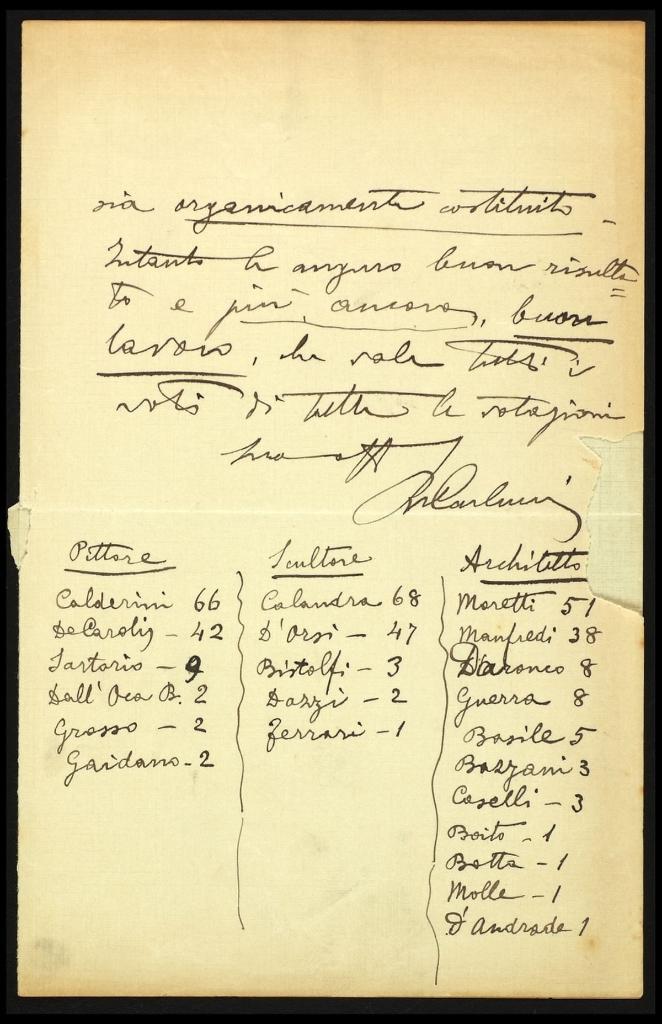 sia organicamente costituito -
Intanto le auguro buon risulta=
to e più ancora, buon
lavoro, che vale tutti i
voti di tutte le votazioni
suo aff
Pittore
Calderini 66
De Carolis - 42
Sartorio - 9
Dall' Oca B. 2
Grosso - 2
Gaidano - 2
Scultore
Calandra 68
D'Orsi - 47
Bistolfi - 3
Dazzi - 2
Ferrari - 1
Architetto
Moretti 51
Manfredi 38
D'Aronco 8
Guerra 8
Basile 5
Bazzani 3
Caselli - 3
Boito - 1
Botta - 1
Molle - 1
D'Andrade 1